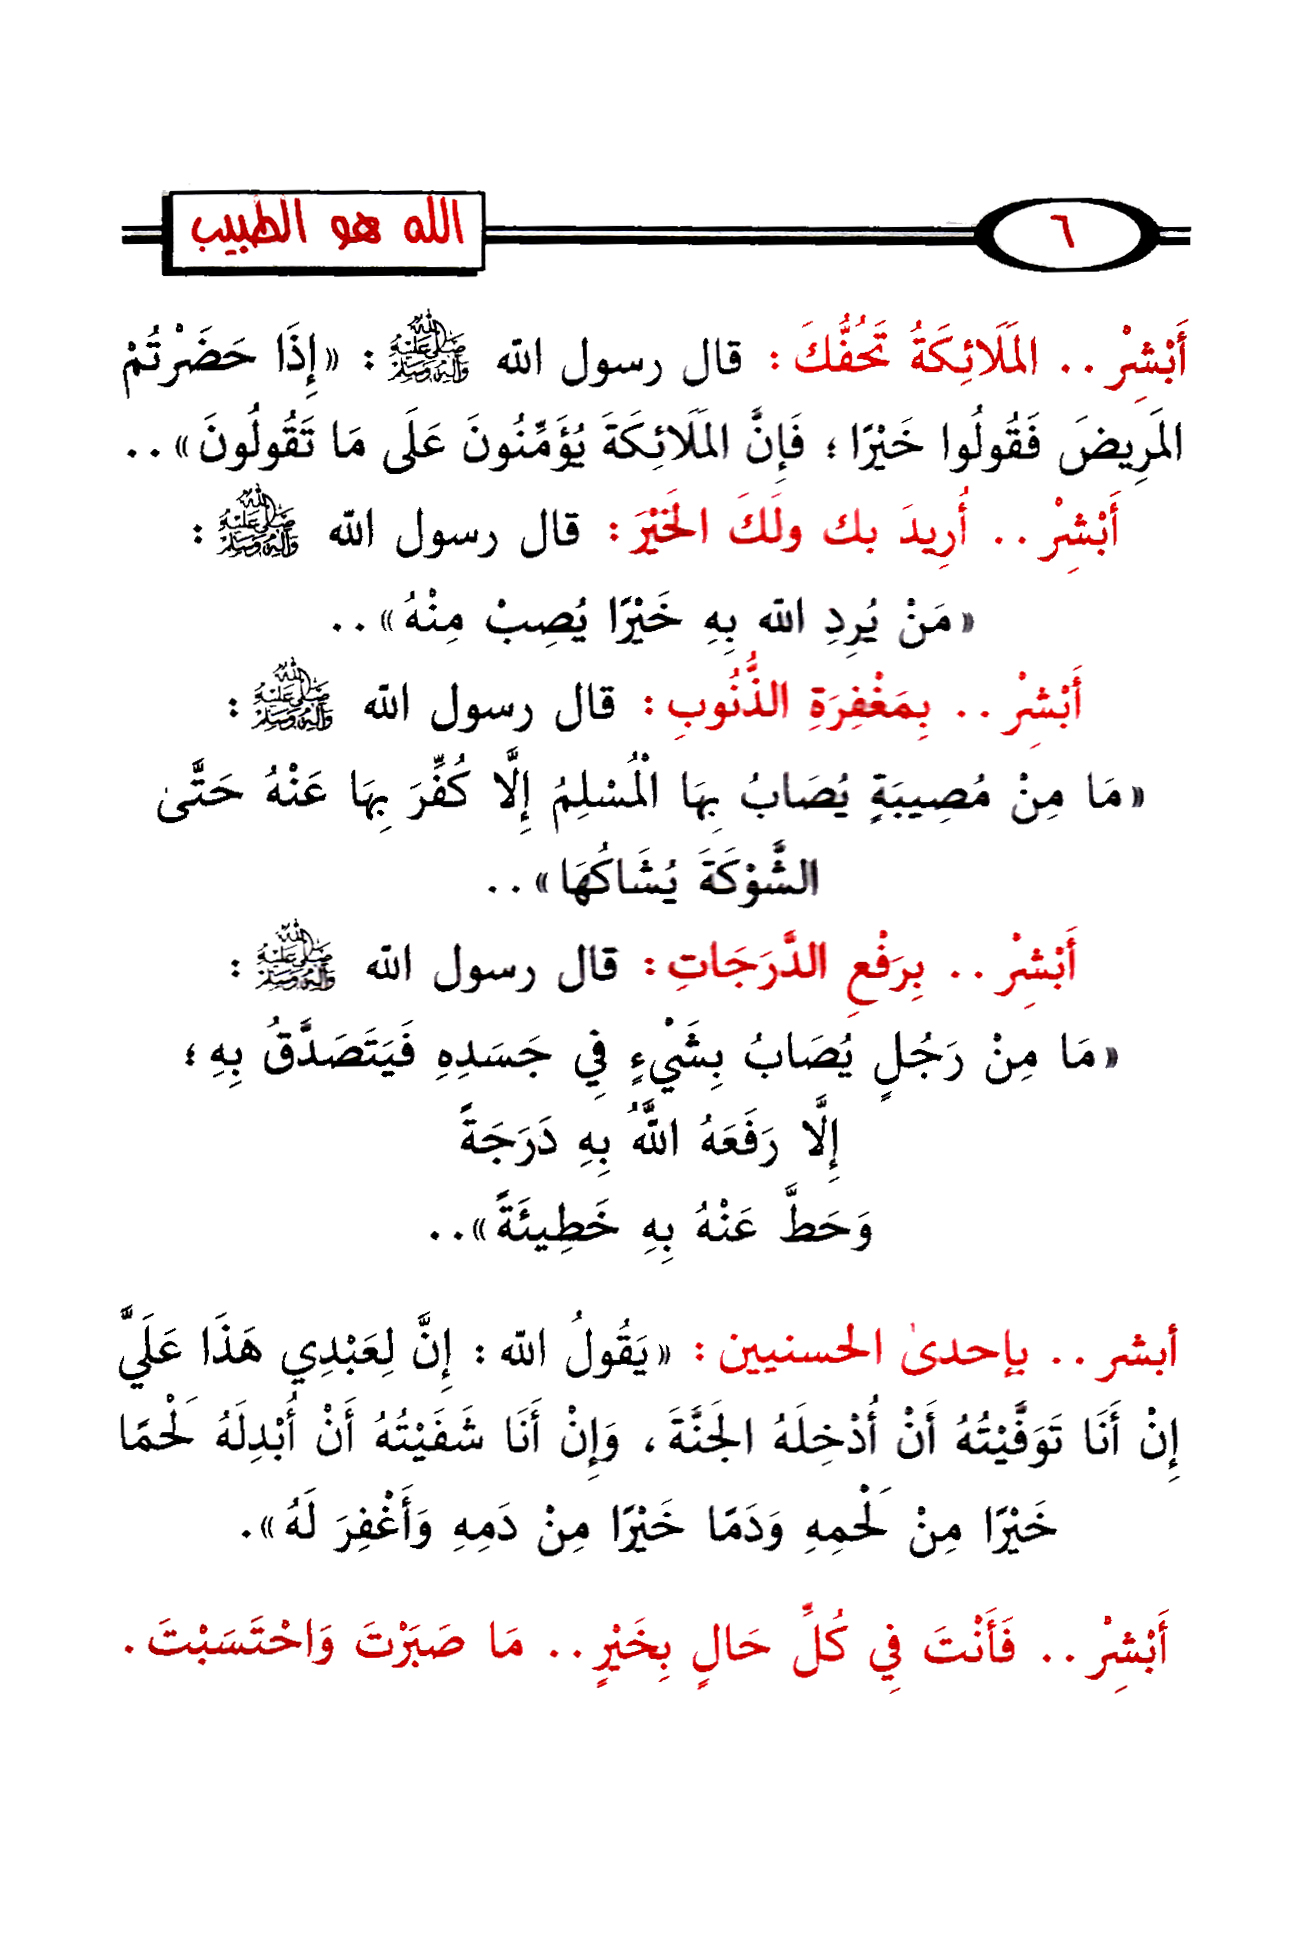 ٦
الله هو الطبيب
أَبْشِرْ .. المَلَائِكَةُ تَحُفُّكَ : قال رسول الله ﷺ : «إِذَا حَضَرْتُمْ
المَرِيضَ فَقُولُوا خَيْرًا ؛ فَإِنَّ المَلَائِكَةَ يُؤَمِّنُونَ عَلَى مَا تَقُولُونَ» ..
أَبْشِرْ .. أُرِيدَ بك ولَكَ الخَيْرَ : قال رسول الله ﷺ :
«مَنْ يُرِدِ الله بِهِ خَيْرًا يُصِبْ مِنْهُ» ..
أَبْشِرْ .. بِمَغْفِرَةِ الذُّنُوبِ : قال رسول الله ﷺ :
«مَا مِنْ مُصِيبَةٍ يُصَابُ بِهَا الْمُسْلِمُ إِلَّا كُفِّرَ بِهَا عَنْهُ حَتَّىٰ
الشَّوْكَةَ يُشَاكُهَا» ..
أَبْشِرْ .. بِرَفْعِ الدَّرَجَاتِ : قال رسول الله ﷺ :
«مَا مِنْ رَجُلٍ يُصَابُ بِشَيْءٍ فِي جَسَدِهِ فَيَتَصَدَّقُ بِهِ ؛
إِلَّا رَفَعَهُ اللَّهُ بِهِ دَرَجَةً
وَحَطَّ عَنْهُ بِهِ خَطِيئَةً» ..
أبشر .. بإحدىٰ الحسنيين : «يَقُولُ الله : إِنَّ لِعَبْدِي هَذَا عَلَيَّ
إِنْ أَنَا تَوَفَّيْتُهُ أَنْ أُدْخِلَهُ الجَنَّةَ ، وَإِنْ أَنَا شَفَيْتُهُ أَنْ أُبْدِلَهُ لَحْمًا
خَيْرًا مِنْ لَحْمِهِ وَدَمًا خَيْرًا مِنْ دَمِهِ وَأَغْفِرَ لَهُ» .
أَبْشِرْ .. فَأَنْتَ فِي كُلِّ حَالٍ بِخَيْرٍ .. مَا صَبَرْتَ وَاحْتَسَبْتَ .